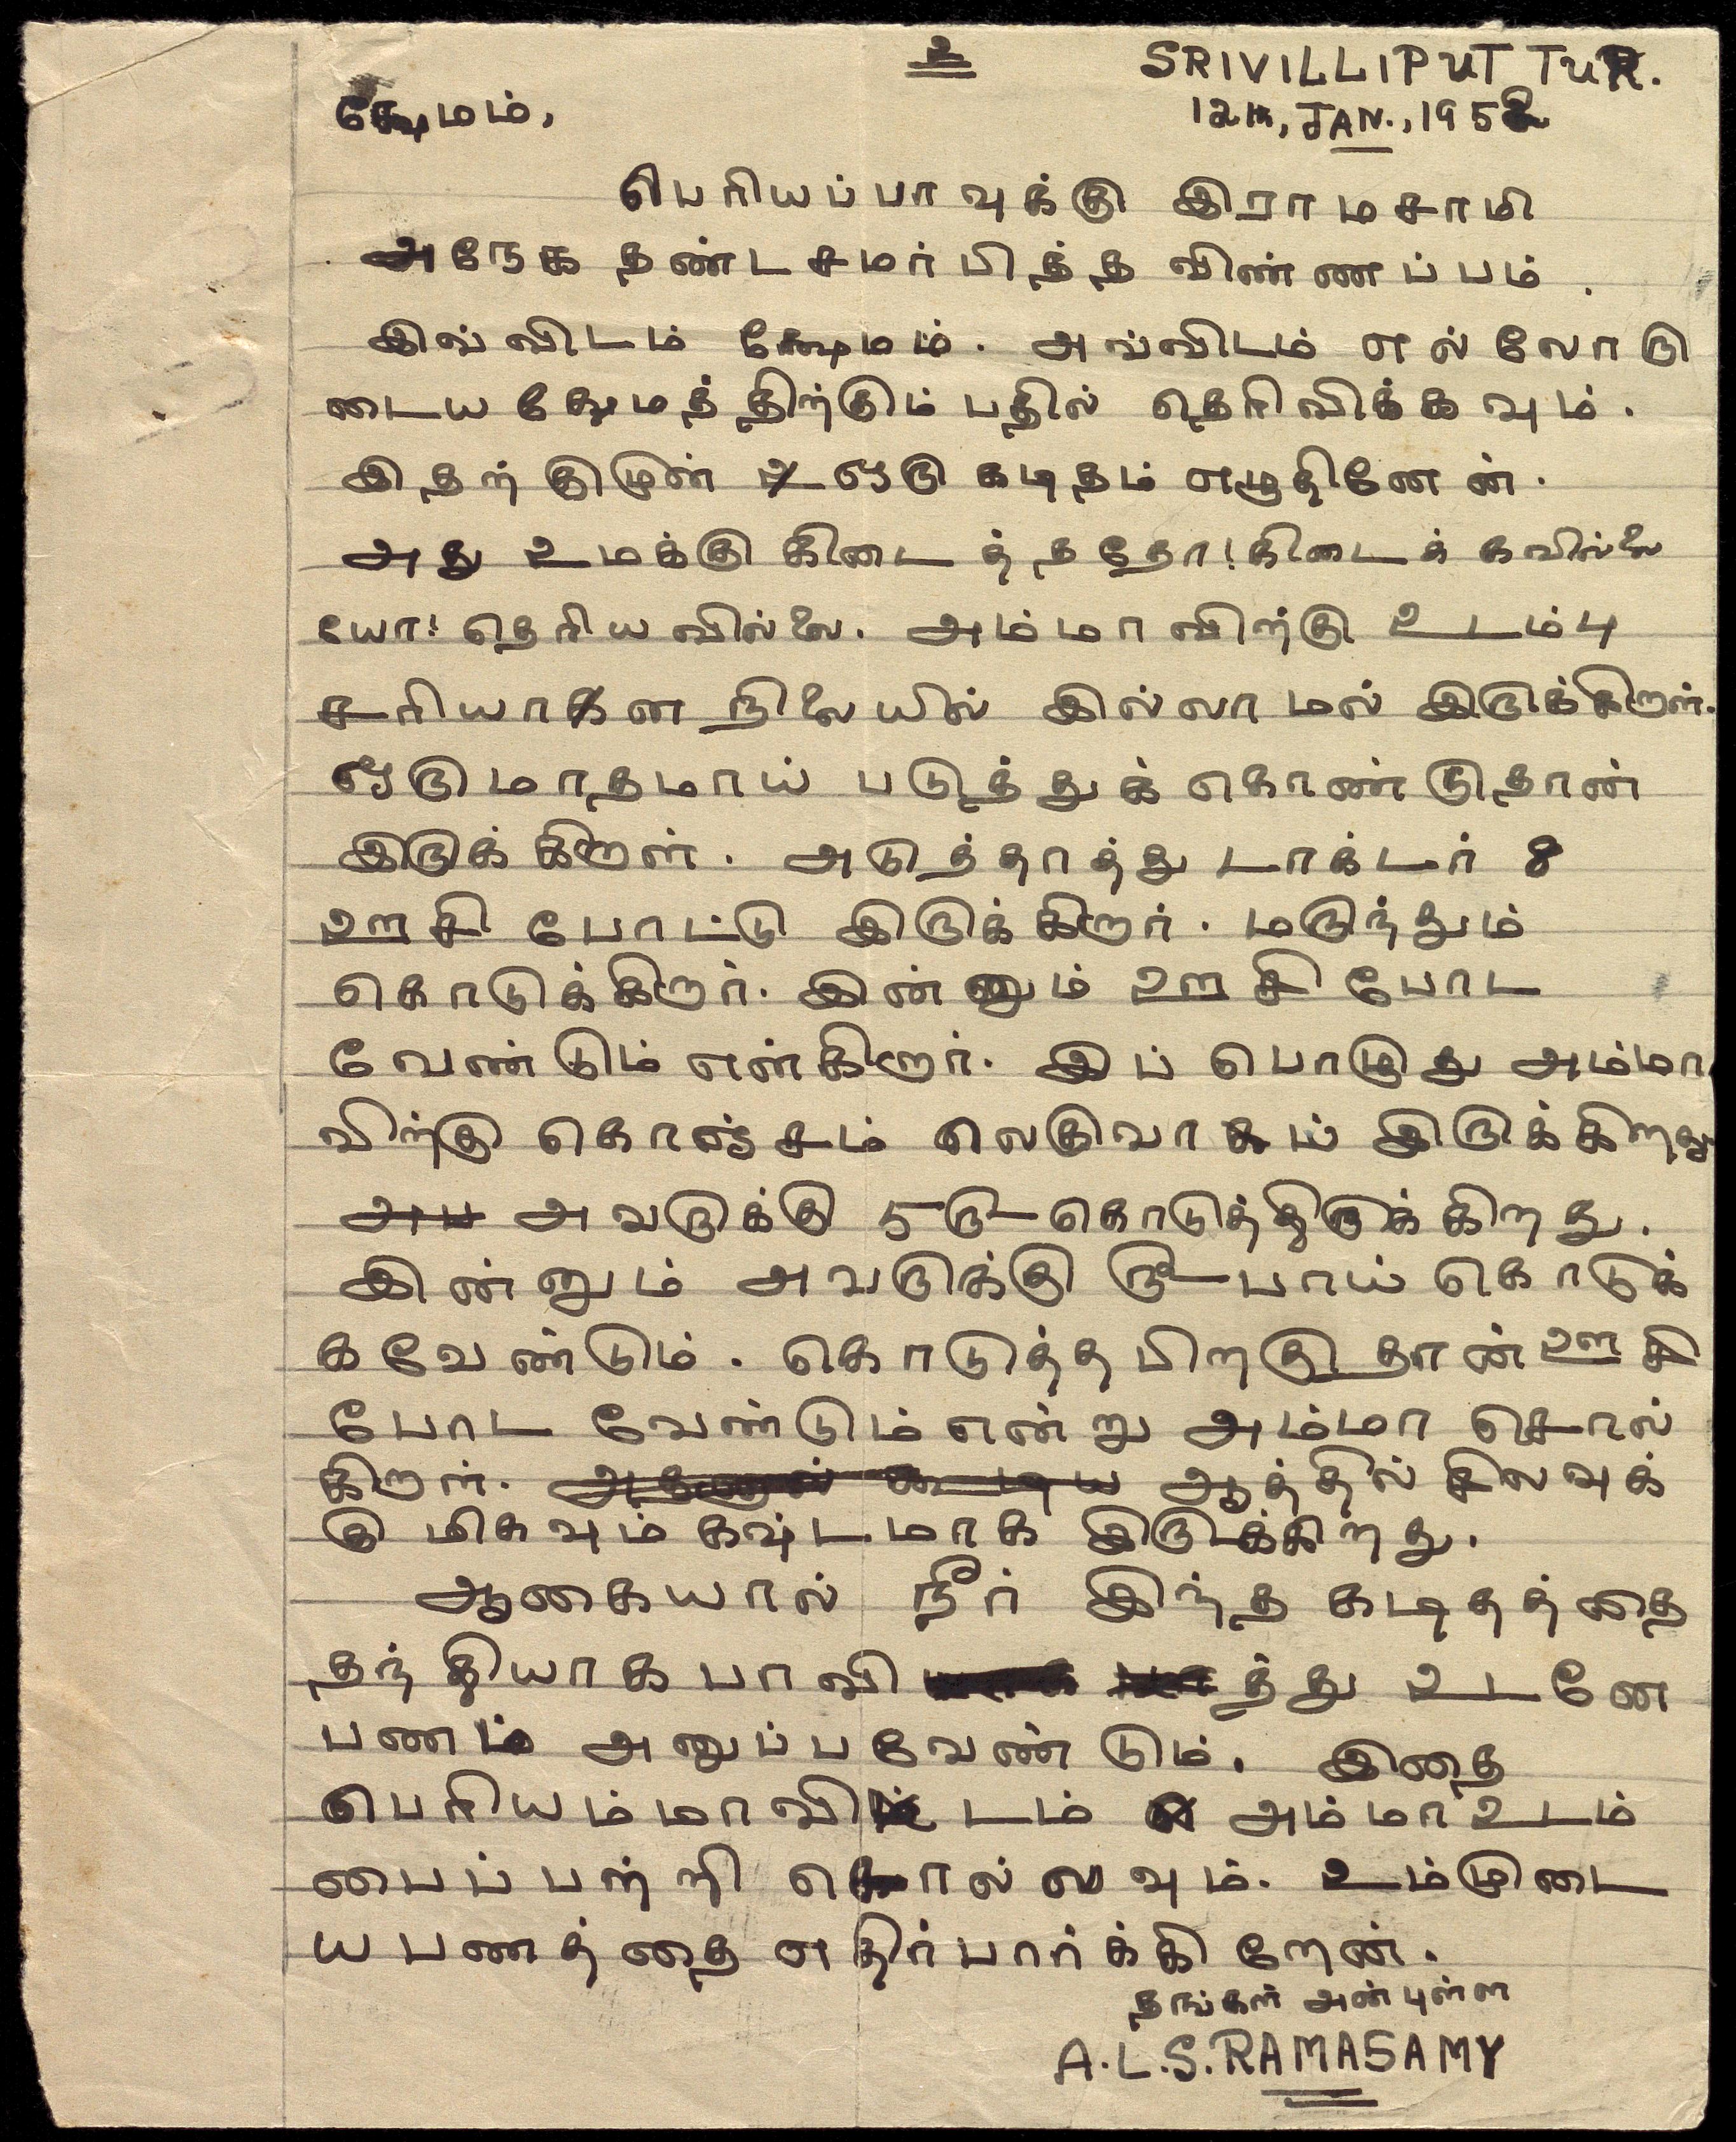 உ
SRIVILLIPUTTUR.
க்ஷேமம்,
12th, JAN., 1952
பெரியப்பாவுக்கு இராமசாமி
அநேக தண்டசமர்பித்த விண்ணப்பம்.
இவ்விடம் க்ஷேமம். அவ்விடம் எல்லோரு
டைய க்ஷேமத்திற்கும் பதில் தெரிவிக்கவும்.
இதற்குமுன் ஒரு கடிதம் எழுதினேன்.
அது உமக்கு கிடைத்ததோ! கிடைக்கவில்லை
யோ! தெரியவில்லை. அம்மாவிற்கு உடம்பு
சரியான நிலையில் இல்லாமல் இருக்கிறாள்.
ஒருமாதமாய் படுத்துக்கொண்டுதான்
இருக்கிறாள். அடுத்தாத்து டாக்டர் 8
ஊசி போட்டு இருக்கிறார். மருந்தும்
கொடுக்கிறார். இன்னும் ஊசி போட
வேண்டும் என்கிறார். இப்பொழுது அம்மா
விற்கு கொஞ்சம் லெகுவாகய் இருக்கிறது
அவருக்கு 5 ரூ கொடுத்திருக்கிறது.
இன்னும் அவருக்கு ரூபாய் கொடுக்
கவேண்டும். கொடுத்த பிறகுதான் ஊசி
போட வேண்டும் என்று அம்மா சொல்
கிறாள். ஆத்தில் சிலவுக்
கு மிகவும் கஷ்டமாக இருக்கிறது.
ஆகையால் நீர் இந்த கடிதத்தை
தந்தியாக பாவித்து உடனே
பணம் அனுப்பவேண்டும். இதை
பெரியம்மாவிடம் அம்மா உடம்
பைப்பற்றி சொல்லவும். உம்முடை
ய பணத்தை எதிர்பார்க்கிறேன்.
தங்கள் அன்புள்ள
A.L.S. RAMASAMY